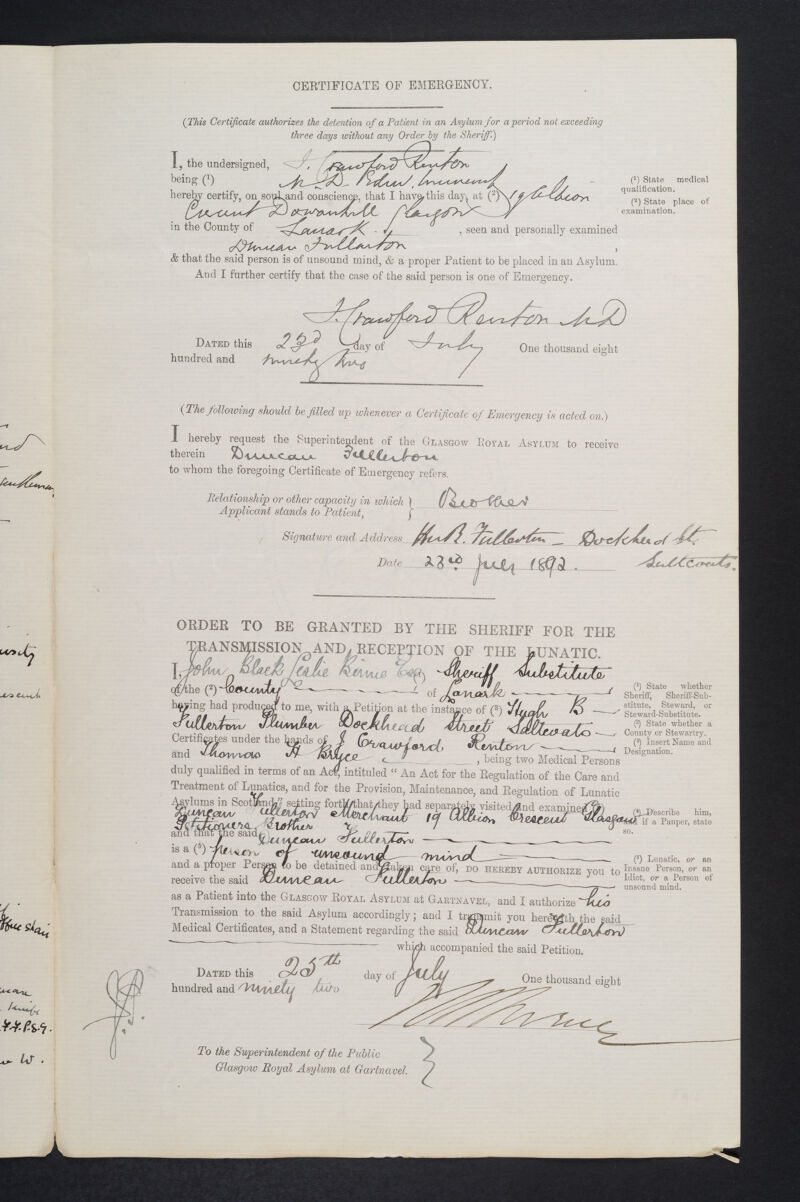 CERTIFICATE OF EMERGENCY.
(This Certificate authorizes the detention of a Patient in an Asylum for a period not exceeding
three days without any Order by the Sheriff.)
I, the undersigned, J. Crawford Renton
being (1) M.D. Edin.
hereby certify, on soul and conscience, that I have this day, at (2) 19 Albion
Crescent Dowanhill Glasgow
in the County of Lanark, seen and personally examined
Duncan Fullarton,
& that the said person is of unsound mind, & a proper Patient to be placed in an Asylum.
And I further certify that the case of the said person is one of Emergency.
(1) State medical
qualification.
(2) State place of
examination.
J. Crawford Renton MD
DATED this 23rd day of July One thousand eight
hundred and ninety two
(The following should be filled up whenever a Certificate of Emergency is acted on.)
I hereby request the Superintendent of the GLASGOW ROYAL ASYLUM to receive
therein Duncan Fullerton
to whom the foregoing Certificate of Emergency refers.
Relationship or other capacity in which } Brother
Applicant stands to Patient,
Signature and Address Hu B. Fullerton – Dockhead St.
Date 23rd July 1892. Saltcoats.
ORDER TO BE GRANTED BY THE SHERIFF FOR THE
TRANSMISSION AND RECEPTION OF THE LUNATIC.
I, John Black Leslie Birnie Esq Sheriff Substitute
of the (2) County of Lanark
having had produced to me, with a Petition at the instance of (3) Hugh B
Fullerton Plumber Dockhead Street Saltcoats
Certificates under the hands of J Crawford Renton
and Thomas H Bryce, being two Medical Persons
duly qualified in terms of an Act, intituled "An Act for the Regulation of the Care and
Treatment of Lunatics, and for the Provision, Maintenance, and Regulation of Lunatic
Asylums in Scotland," setting forth that they had separately visited and examined (4)
Duncan Fullerton Merchant 19 Albion Crescent Glasgow
Petitioners Brother
and that the said Duncan Fullerton
is a (5) person of unsound mind
and a proper Person to be detained and taken care of, DO HEREBY AUTHORIZE you to
receive the said Duncan Fullerton
as a Patient into the GLASGOW ROYAL ASYLUM AT GARTNAVEL, and I authorize his
Transmission to the said Asylum accordingly; and I transmit you herewith the said
Medical Certificates, and a Statement regarding the said Duncan Fullerton
which accompanied the said Petition.
(1) State whether
Sheriff, Sheriff-Sub-
stitute, Steward, or
Steward-Substitute.
(2) State whether a
County or Stewartry.
(3) Insert Name and
Designation.
(4) Describe him,
& if a Pauper, state
so.
(5) Lunatic, or an
Insane Person, or an
Idiot, or a Person of
unsound mind.
DATED this 25th day of July One thousand eight
hundred and ninety two
To the Superintendent of the Public
Glasgow Royal Asylum at Gartnavel.